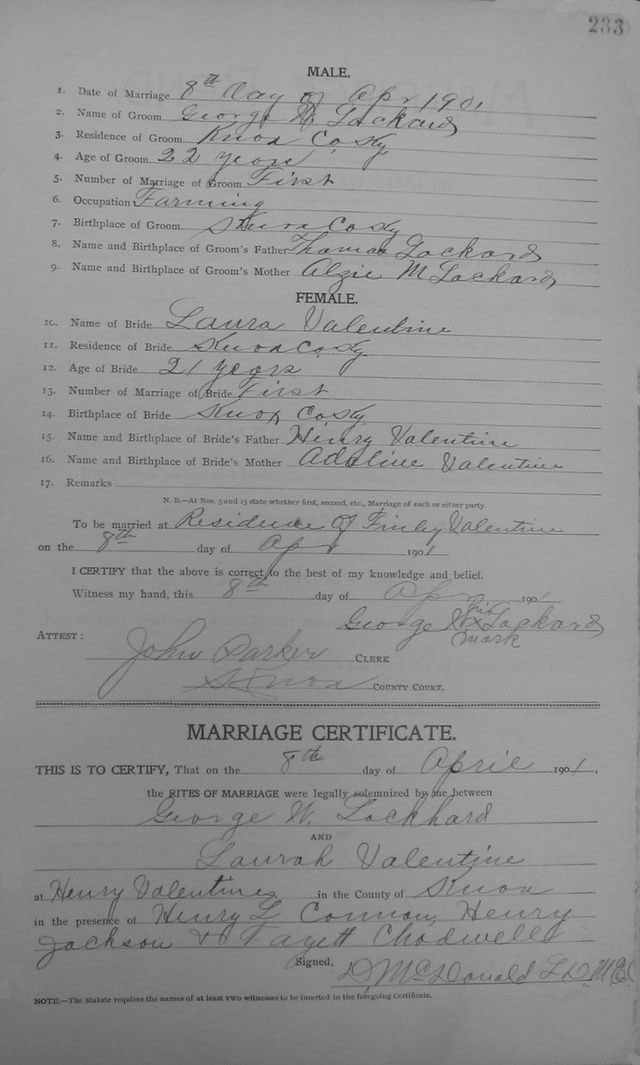 233
MALE.
1. Date of Marriage 8th Day of Apr 1901
2. Name of Groom George W Lockard
3. Residence of Groom Knox Co Ky
4. Age of Groom 22 years
5. Number of Marriage of Groom First
6. Occupation Farming
7. Birthplace of Groom Knox Co Ky
8. Name and Birthplace of Groom's Father Thomas Lockard
9. Name and Birthplace of Groom's Mother Alzie M Lockard
FEMALE.
10. Name of Bride Laura Valentine
11. Residence of Bride Knox Co Ky
12. Age of Bride 21 years
13. Number of Marriage of Bride First
14. Birthplace of Bride Knox Co Ky
15. Name and Birthplace of Bride's Father Henry Valentine
16. Name and Birthplace of Bride's Mother Adaline Valentine
17. Remarks
N. B.—At Nos. 5 and 13 state whether first, second, etc., Marriage of each or either party.
To be married at Residence of Finley Valentine
on the 8th day of Apr 1901
I CERTIFY that the above is correct to the best of my knowledge and belief.
Witness my hand, this 8th day of Apr 1901
George W his x mark Lockard
ATTEST:
John Parker CLERK
Knox COUNTY COURT.
MARRIAGE CERTIFICATE.
THIS IS TO CERTIFY, That on the 8th day of April 1901,
the RITES OF MARRIAGE were legally solemnized by me between
George W. Lockhard
AND
Laurah Valentine
at Henry Valentines in the County of Knox
in the presence of Henry L Connon, Henry
Jackson & Fayett Chadwell
Signed, D McDonald
NOTE.—The Statute requires the names of at least two witnesses to be inserted in the foregoing Certificate.